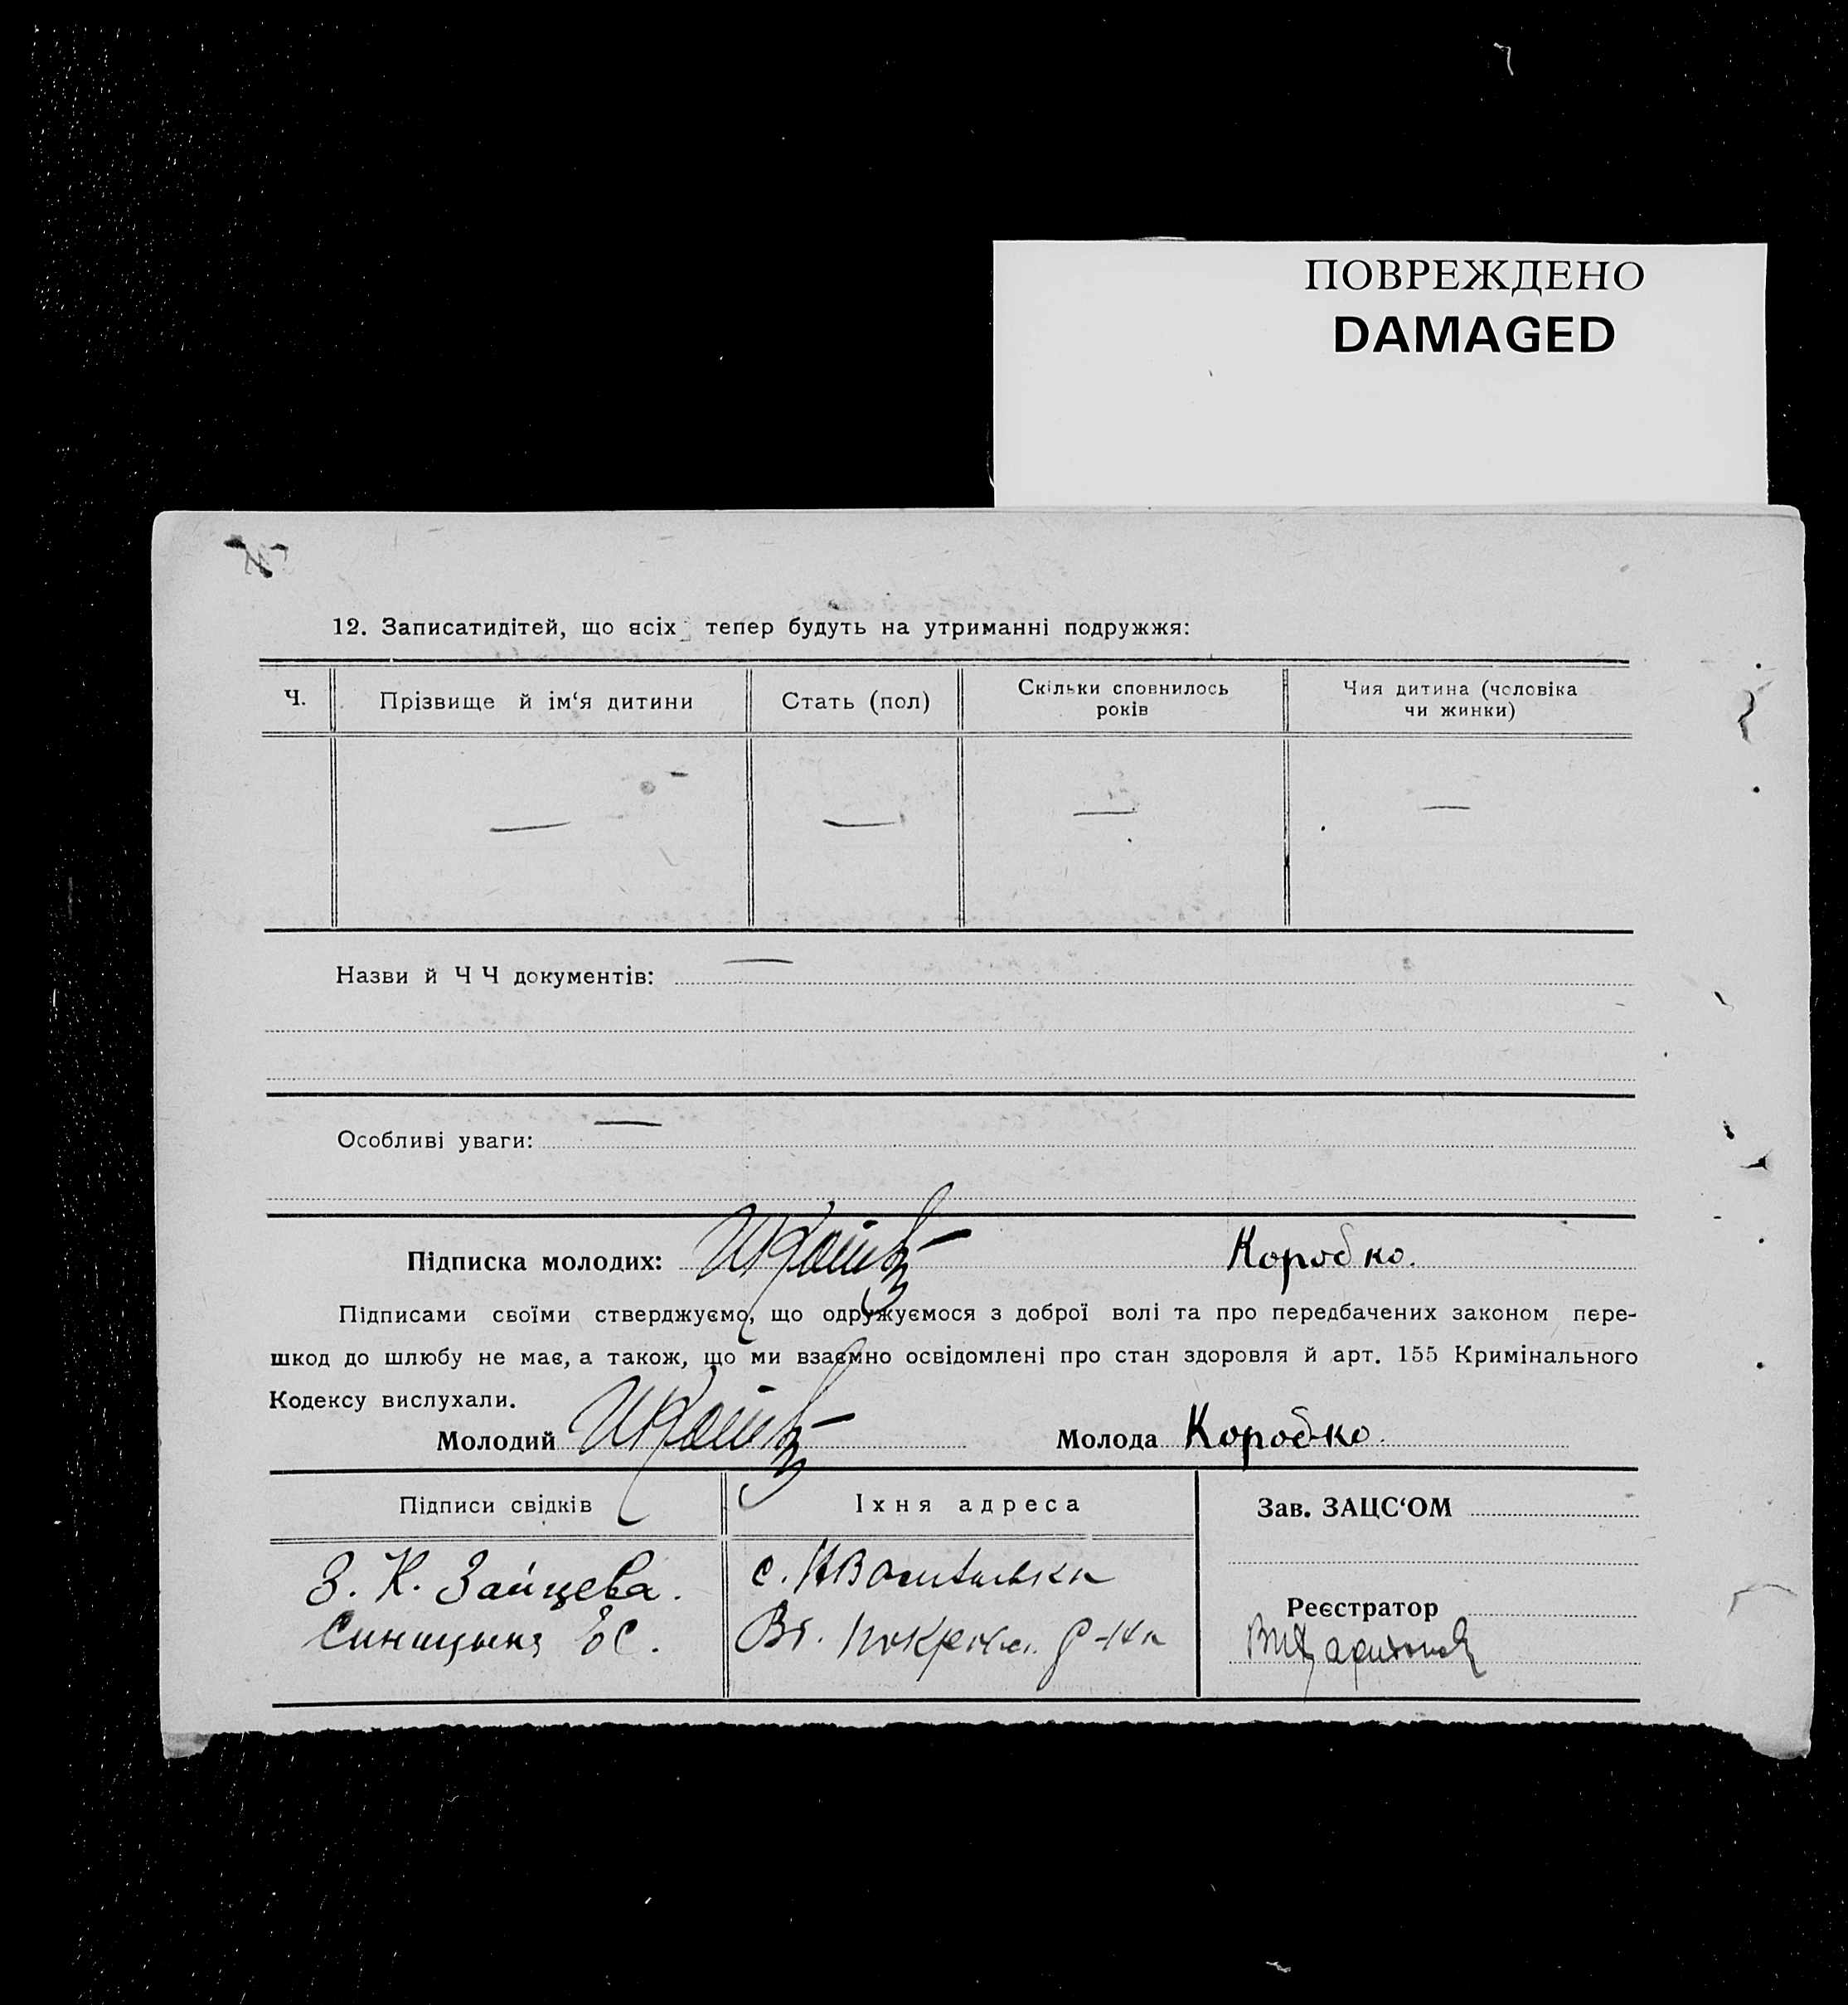 ПОВРЕЖДЕНО
DAMAGED
12. Записатидітей, що всіх тепер будуть на утриманні подружжя:
Ч. Прізвище й ім‘я дитини Стать (пол) Скільки сповнилось років Чия дитина (чоловіка чи жинки)
— — — —
Назви й Ч Ч документів: —
Особливі уваги: —
Підписка молодих: Коробко.
Підписами своїми стверджуємо, що одружуємося з доброї волі та про передбачених законом пере-
шкод до шлюбу не має, а також, що ми взаємно освідомлені про стан здоровля й арт. 155 Кримінального
Кодексу вислухали.
Молодий Молода Коробко.
Підписи свідків Їхня адреса Зав. ЗАЦС‘ОМ
З. К. Зайцева. с.
Реєстратор
Синицына ЕС. р-на